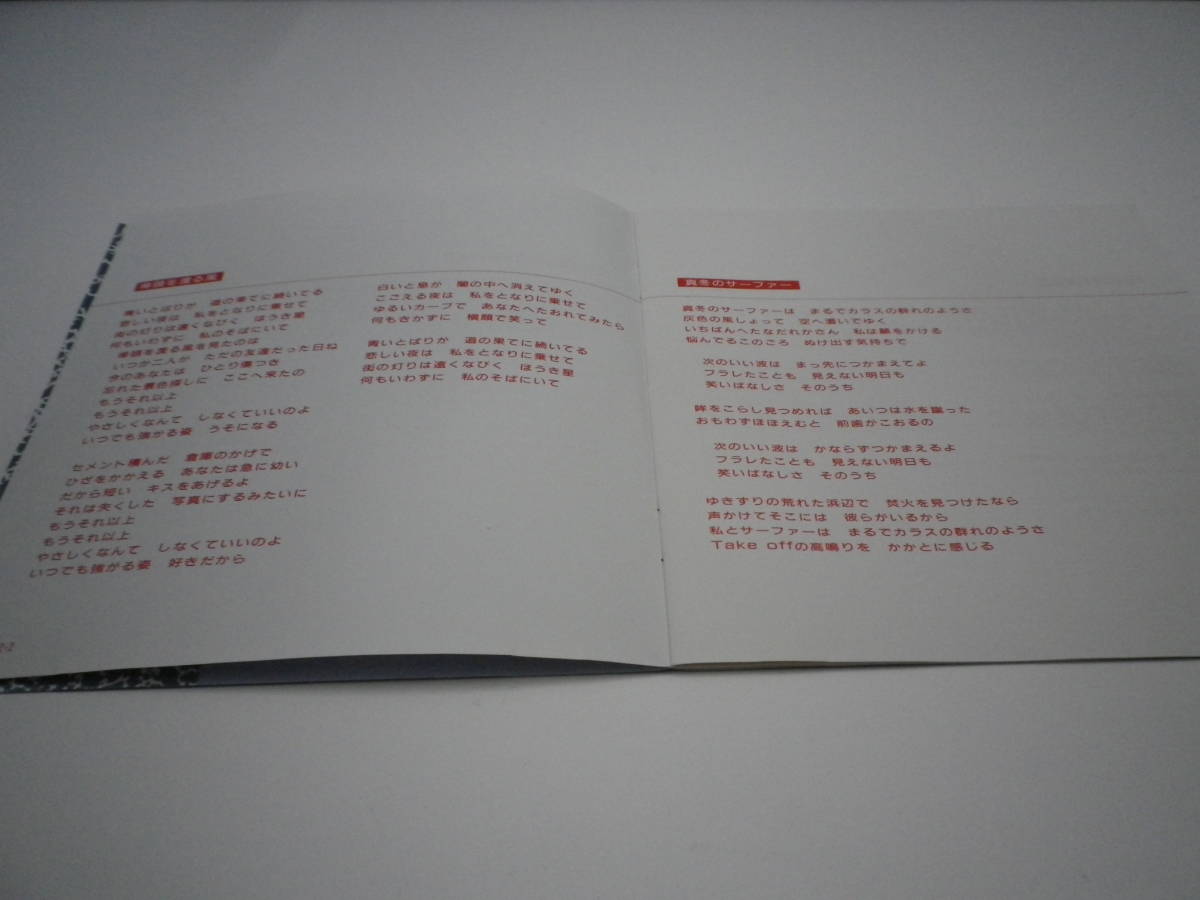 埠頭を渡る風
青いとばりが 道の果てに続いてる
悲しい夜は 私をとなりに乗せて
街の灯りは遠くなびく ほうき星
何もいわずに 私のそばにいて
埠頭を渡る風を見たのは
いつか二人が ただの友達だった日ね
今のあなたは ひとり傷つき
忘れた景色探しに ここへ来たの
もうそれ以上
もうそれ以上
やさしくなんて しなくていいのよ
いつでも強がる姿 うそになる
セメント積んだ 倉庫のかげで
ひざをかかえる あなたは急に幼い
だから短い キスをあげるよ
それは失くした 写真にするみたいに
もうそれ以上
もうそれ以上
やさしくなんて しなくていいのよ
いつでも強がる姿 好きだから
白いと息が 闇の中へ消えてゆく
ここえる夜は 私をとなりに乗せて
ゆるいカーブで あなたへたおれてみたら
何もきかずに 横顔で笑って
青いとばりが 道の果てに続いてる
悲しい夜は 私をとなりに乗せて
街の灯りは遠くなびく ほうき星
何もいわずに 私のそばにいて
2-2
真冬のサーファー
真冬のサーファーは まるでカラスの群れのようさ
灰色の風しょって 空へ漕いでゆく
いちばんへたなだれかさん 私は賭をかける
悩んでるこのころ ぬけ出す気持ちで
次のいい波は まっ先につかまえてよ
フラレたことも 見えない明日も
笑いばなしさ そのうち
眸をこらし見つめれば あいつは水を蹴った
おもわずほほえむと 前歯がこおるの
次のいい波は かならずつかまえるよ
フラレたことも 見えない明日も
笑いばなしさ そのうち
ゆきずりの荒れた浜辺で 焚火を見つけたなら
声かけてそこには 彼らがいるから
私とサーファーは まるでカラスの群れのようさ
Take offの高鳴りを かかとに感じる